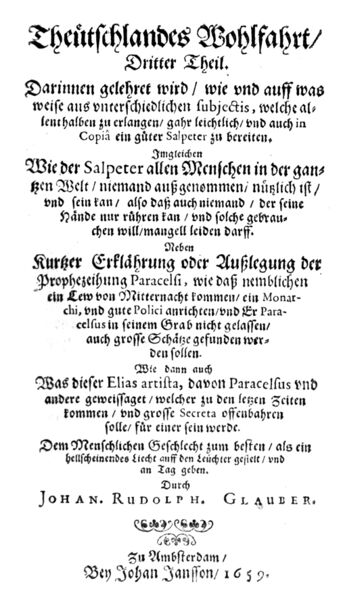 Theütschlandes Wohlfahrt/
Dritter Theil.
Darinnen gelehret wird / wie vnd auff was
weise aus vnterschiedlichen subjectis, welche al-
lenthalben zu erlangen/ gahr leichtlich/ vnd auch in
Copiâ ein güter Salpeter zu bereiten.
Imgleichen
Wie der Salpeter allen Menschen in der gan-
tzen Welt / niemand außgenommen/ nützlich ist/
vnd sein kan / also daß auch niemand / der seine
Hände nur rühren kan / vnd solche gebrau-
chen will/mangell leiden darff.
Neben
Kurtzer Erklährung oder Außlegung der
Prophezeihung Paracelsi, wie daß nemblichen
ein Lew von Mitternacht kommen/ ein Monar-
chi, vnd gute Polici anrichten/vnd Er Para-
celsus in seinem Grab nicht gelassen/
auch grosse Schätze gefunden wer-
den sollen.
Wie dann auch
Was dieser Elias artista, davon Paracelsus vnd
andere geweissaget/ welcher zu den letzen Zeiten
kommen / vnd grosse Secreta offenbahren
solle/ für einer sein werde.
Dem Menschlichen Geschlecht zum besten / als ein
hellscheinendes Liecht auff den Leüchter gestelt / vnd
an Tag geben.
Durch
JOHAN. RUDOLPH. GLAUBER.
Zu Ambsterdam/
Bey Johan Jansson/ 1659.